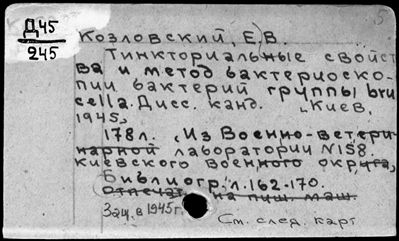 Д45
245
Козловский, Е.В.
Тинкториальные свойст
ва и метод бактериоско-
пии бактерий группы bru
cella. Дисс. канд. Киев,
1945,
178л. Из Военно-ветери-
нарной лаборатории N158.
Киевского военного округа,
Библиогр: л. 162-170.
Отпечат. на пиш. маш.
Защ. в 1945г.
См. след. карт